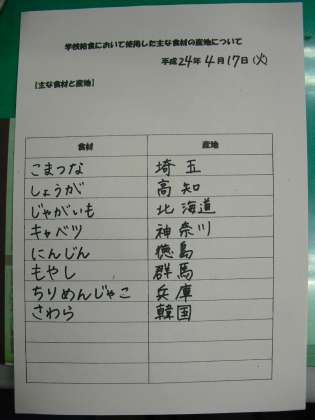 学校給食において使用した主な食材の産地について
平成24年4月17日(火)
【主な食材と産地】
食材 産地
こまつな 埼玉
しょうが 高知
じゃがいも 北海道
キャベツ 神奈川
にんじん 徳島
もやし 群馬
ちりめんじゃこ 兵庫
さわら 韓国